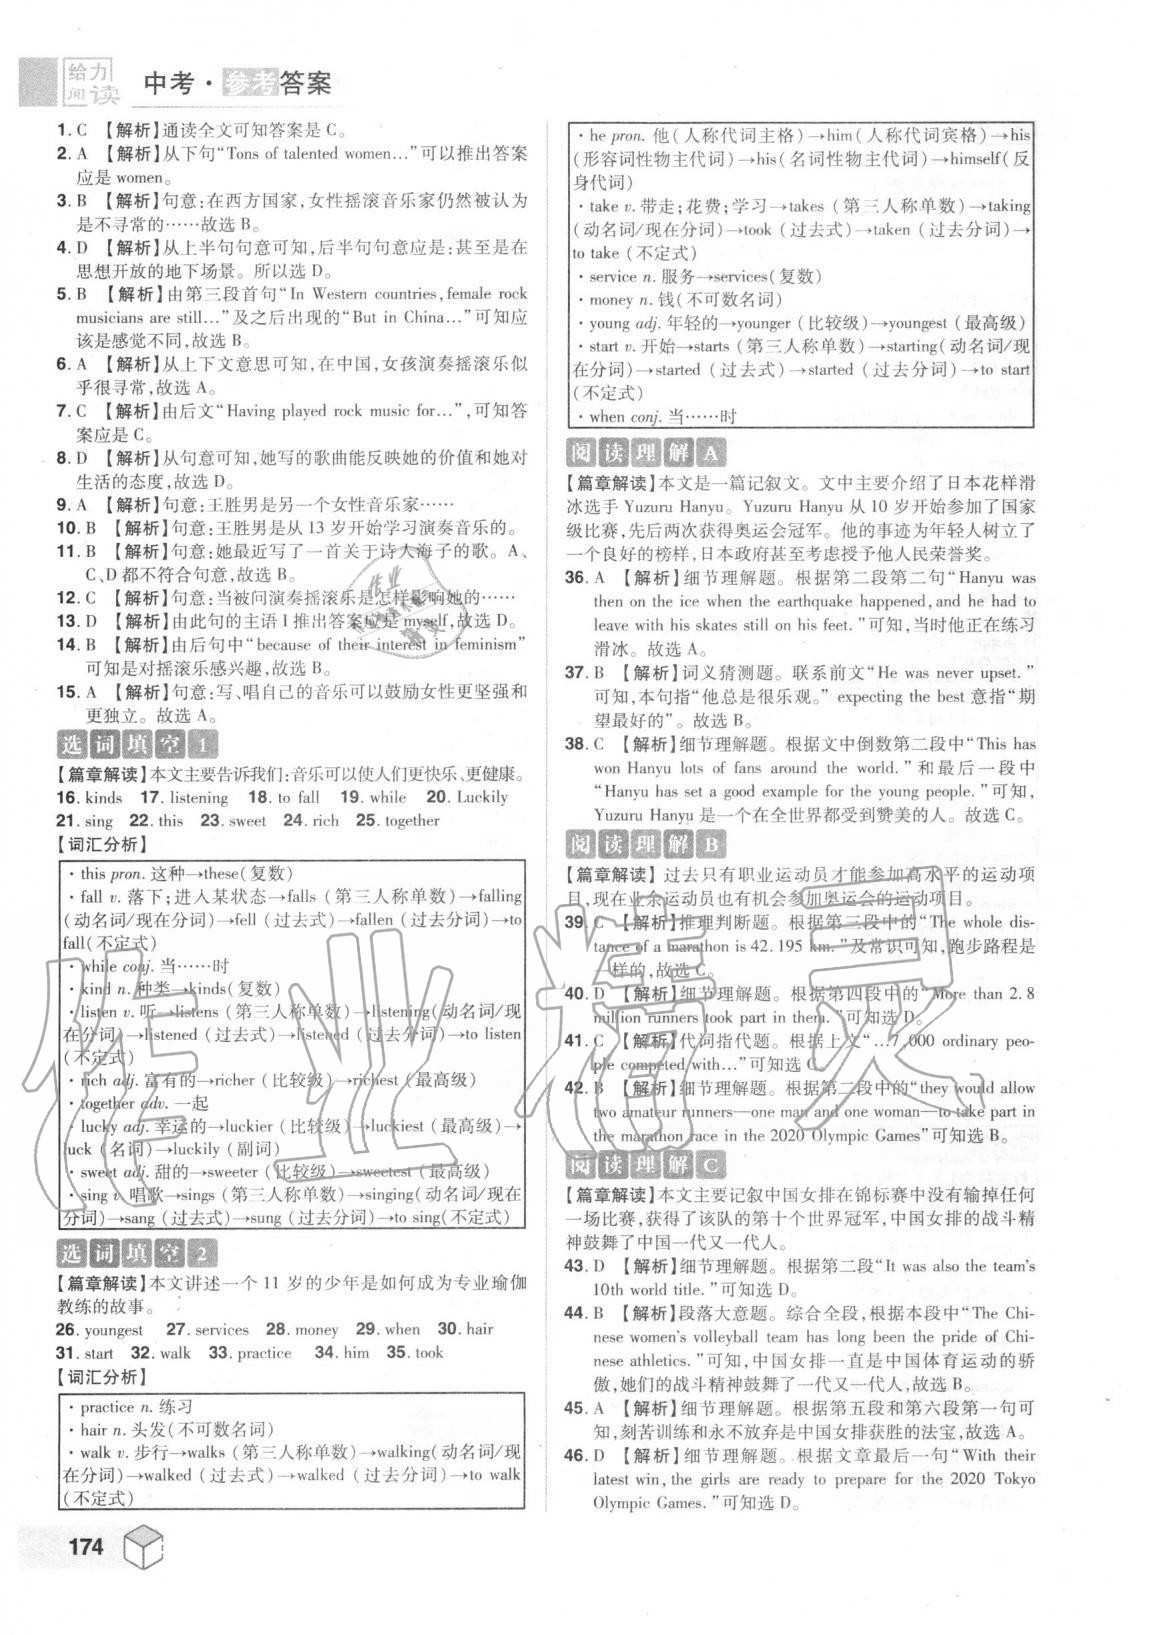 给力
阅读
中考·参考答案
1. C 【解析】通读全文可知答案是 C。
2. A 【解析】从下句“Tons of talented women…”可以推出答案
应是 women。
3. B 【解析】句意:在西方国家,女性摇滚音乐家仍然被认为
是不寻常的……故选 B。
4. D 【解析】从上半句句意可知,后半句句意应是:甚至是在
思想开放的地下场景。所以选 D。
5. B 【解析】由第三段首句“In Western countries, female rock
musicians are still…”及之后出现的“But in China…”可知应
该是感觉不同,故选 B。
6. A 【解析】从上下文意思可知,在中国,女孩演奏摇滚乐似
乎很寻常,故选 A。
7. C 【解析】由后文“Having played rock music for…”,可知答
案应是 C。
8. D 【解析】从句意可知,她写的歌曲能反映她的价值和她对
生活的态度,故选 D。
9. A 【解析】句意:王胜男是另一个女性音乐家……
10. B 【解析】句意:王胜男是从 13 岁开始学习演奏音乐的。
11. B 【解析】句意:她最近写了一首关于诗人海子的歌。A、
C、D 都不符合句意,故选 B。
12. C 【解析】句意:当被问演奏摇滚乐是怎样影响她的……
13. D 【解析】由此句的主语 I 推出答案应是 myself,故选 D。
14. B 【解析】由后句中“because of their interest in feminism”
可知是对摇滚乐感兴趣,故选 B。
15. A 【解析】句意:写、唱自己的音乐可以鼓励女性更坚强和
更独立。故选 A。
选词填空 1
【篇章解读】本文主要告诉我们:音乐可以使人们更快乐、更健康。
16. kinds 17. listening 18. to fall 19. while 20. Luckily
21. sing 22. this 23. sweet 24. rich 25. together
【词汇分析】
· this pron. 这种→these(复数)
· fall v. 落下;进入某状态→falls (第三人称单数)→falling
(动名词/现在分词)→fell (过去式)→fallen (过去分词)→to
fall(不定式)
· while conj. 当……时
· kind n. 种类→kinds(复数)
· listen v. 听→listens (第三人称单数)→listening(动名词/现
在分词)→listened (过去式)→listened (过去分词)→to listen
(不定式)
· rich adj. 富有的→richer (比较级)→richest(最高级)
· together adv. 一起
· lucky adj. 幸运的→luckier (比较级)→luckiest(最高级)→
luck (名词)→luckily (副词)
· sweet adj. 甜的→sweeter (比较级)→sweetest(最高级)
· sing v. 唱歌→sings (第三人称单数)→singing(动名词/现在
分词)→sang (过去式)→sung (过去分词)→to sing(不定式)
选词填空 2
【篇章解读】本文讲述一个 11 岁的少年是如何成为专业瑜伽
教练的故事。
26. youngest 27. services 28. money 29. when 30. hair
31. start 32. walk 33. practice 34. him 35. took
【词汇分析】
· practice n. 练习
· hair n. 头发(不可数名词)
· walk v. 步行→walks (第三人称单数)→walking(动名词/现
在分词)→walked (过去式)→walked (过去分词)→to walk
(不定式)
174
· he pron. 他(人称代词主格)→him(人称代词宾格)→his
(形容词性物主代词)→his(名词性物主代词)→himself(反
身代词)
· take v. 带走;花费;学习→takes (第三人称单数)→taking
(动名词/现在分词)→took (过去式)→taken (过去分词)→
to take (不定式)
· service n. 服务→services(复数)
· money n. 钱(不可数名词)
· young adj. 年轻的→younger (比较级)→youngest (最高级)
· start v. 开始→starts (第三人称单数)→starting(动名词/现
在分词)→started (过去式)→started (过去分词)→to start
(不定式)
· when conj. 当……时
阅读理解 A
【篇章解读】本文是一篇记叙文。文中主要介绍了日本花样滑
冰选手 Yuzuru Hanyu。Yuzuru Hanyu 从 10 岁开始参加了国家
级比赛,先后两次获得奥运会冠军。他的事迹为年轻人树立了
一个良好的榜样,日本政府甚至考虑授予他人民荣誉奖。
36. A 【解析】细节理解题。根据第二段第二句“Hanyu was
then on the ice when the earthquake happened, and he had to
leave with his skates still on his feet.”可知,当时他正在练习
滑冰。故选 A。
37. B 【解析】词义猜测题。联系前文“He was never upset.”
可知,本句指“他总是很乐观。”expecting the best 意指“期
望最好的”。故选 B。
38. C 【解析】细节理解题。根据文中倒数第二段中“This has
won Hanyu lots of fans around the world.”和最后一段中
“Hanyu has set a good example for the young people.”可知,
Yuzuru Hanyu 是一个在全世界都受到赞美的人。故选 C。
阅读理解 B
【篇章解读】过去只有职业运动员才能参加高水平的运动项
目,现在业余运动员也有机会参加奥运会的运动项目。
39. C 【解析】推理判断题。根据第三段中的“The whole dis-
tance of a marathon is 42. 195 km.”及常识可知,跑步路程是
一样的,故选 C。
40. D 【解析】细节理解题。根据第四段中的“More than 2. 8
million runners took part in them.”可知选 D。
41. C 【解析】代词指代题。根据上文“…7,000 ordinary peo-
ple competed with…”可知选 C。
42. B 【解析】细节理解题。根据第二段中的“they would allow
two amateur runners—one man and one woman—to take part in
the marathon race in the 2020 Olympic Games”可知选 B。
阅读理解 C
【篇章解读】本文主要记叙中国女排在锦标赛中没有输掉任何
一场比赛,获得了该队的第十个世界冠军,中国女排的战斗精
神鼓舞了中国一代又一代人。
43. D 【解析】细节理解题。根据第二段“It was also the team's
10th world title.”可知选 D。
44. B 【解析】段落大意题。综合全段,根据本段中“The Chi-
nese women's volleyball team has long been the pride of Chi-
nese athletics.”可知,中国女排一直是中国体育运动的骄
傲,她们的战斗精神鼓舞了一代又一代人,故选 B。
45. A 【解析】细节理解题。根据第五段和第六段第一句可
知,刻苦训练和永不放弃是中国女排获胜的法宝,故选 A。
46. D 【解析】细节理解题。根据文章最后一句“With their
latest win, the girls are ready to prepare for the 2020 Tokyo
Olympic Games.”可知选 D。
作业精灵